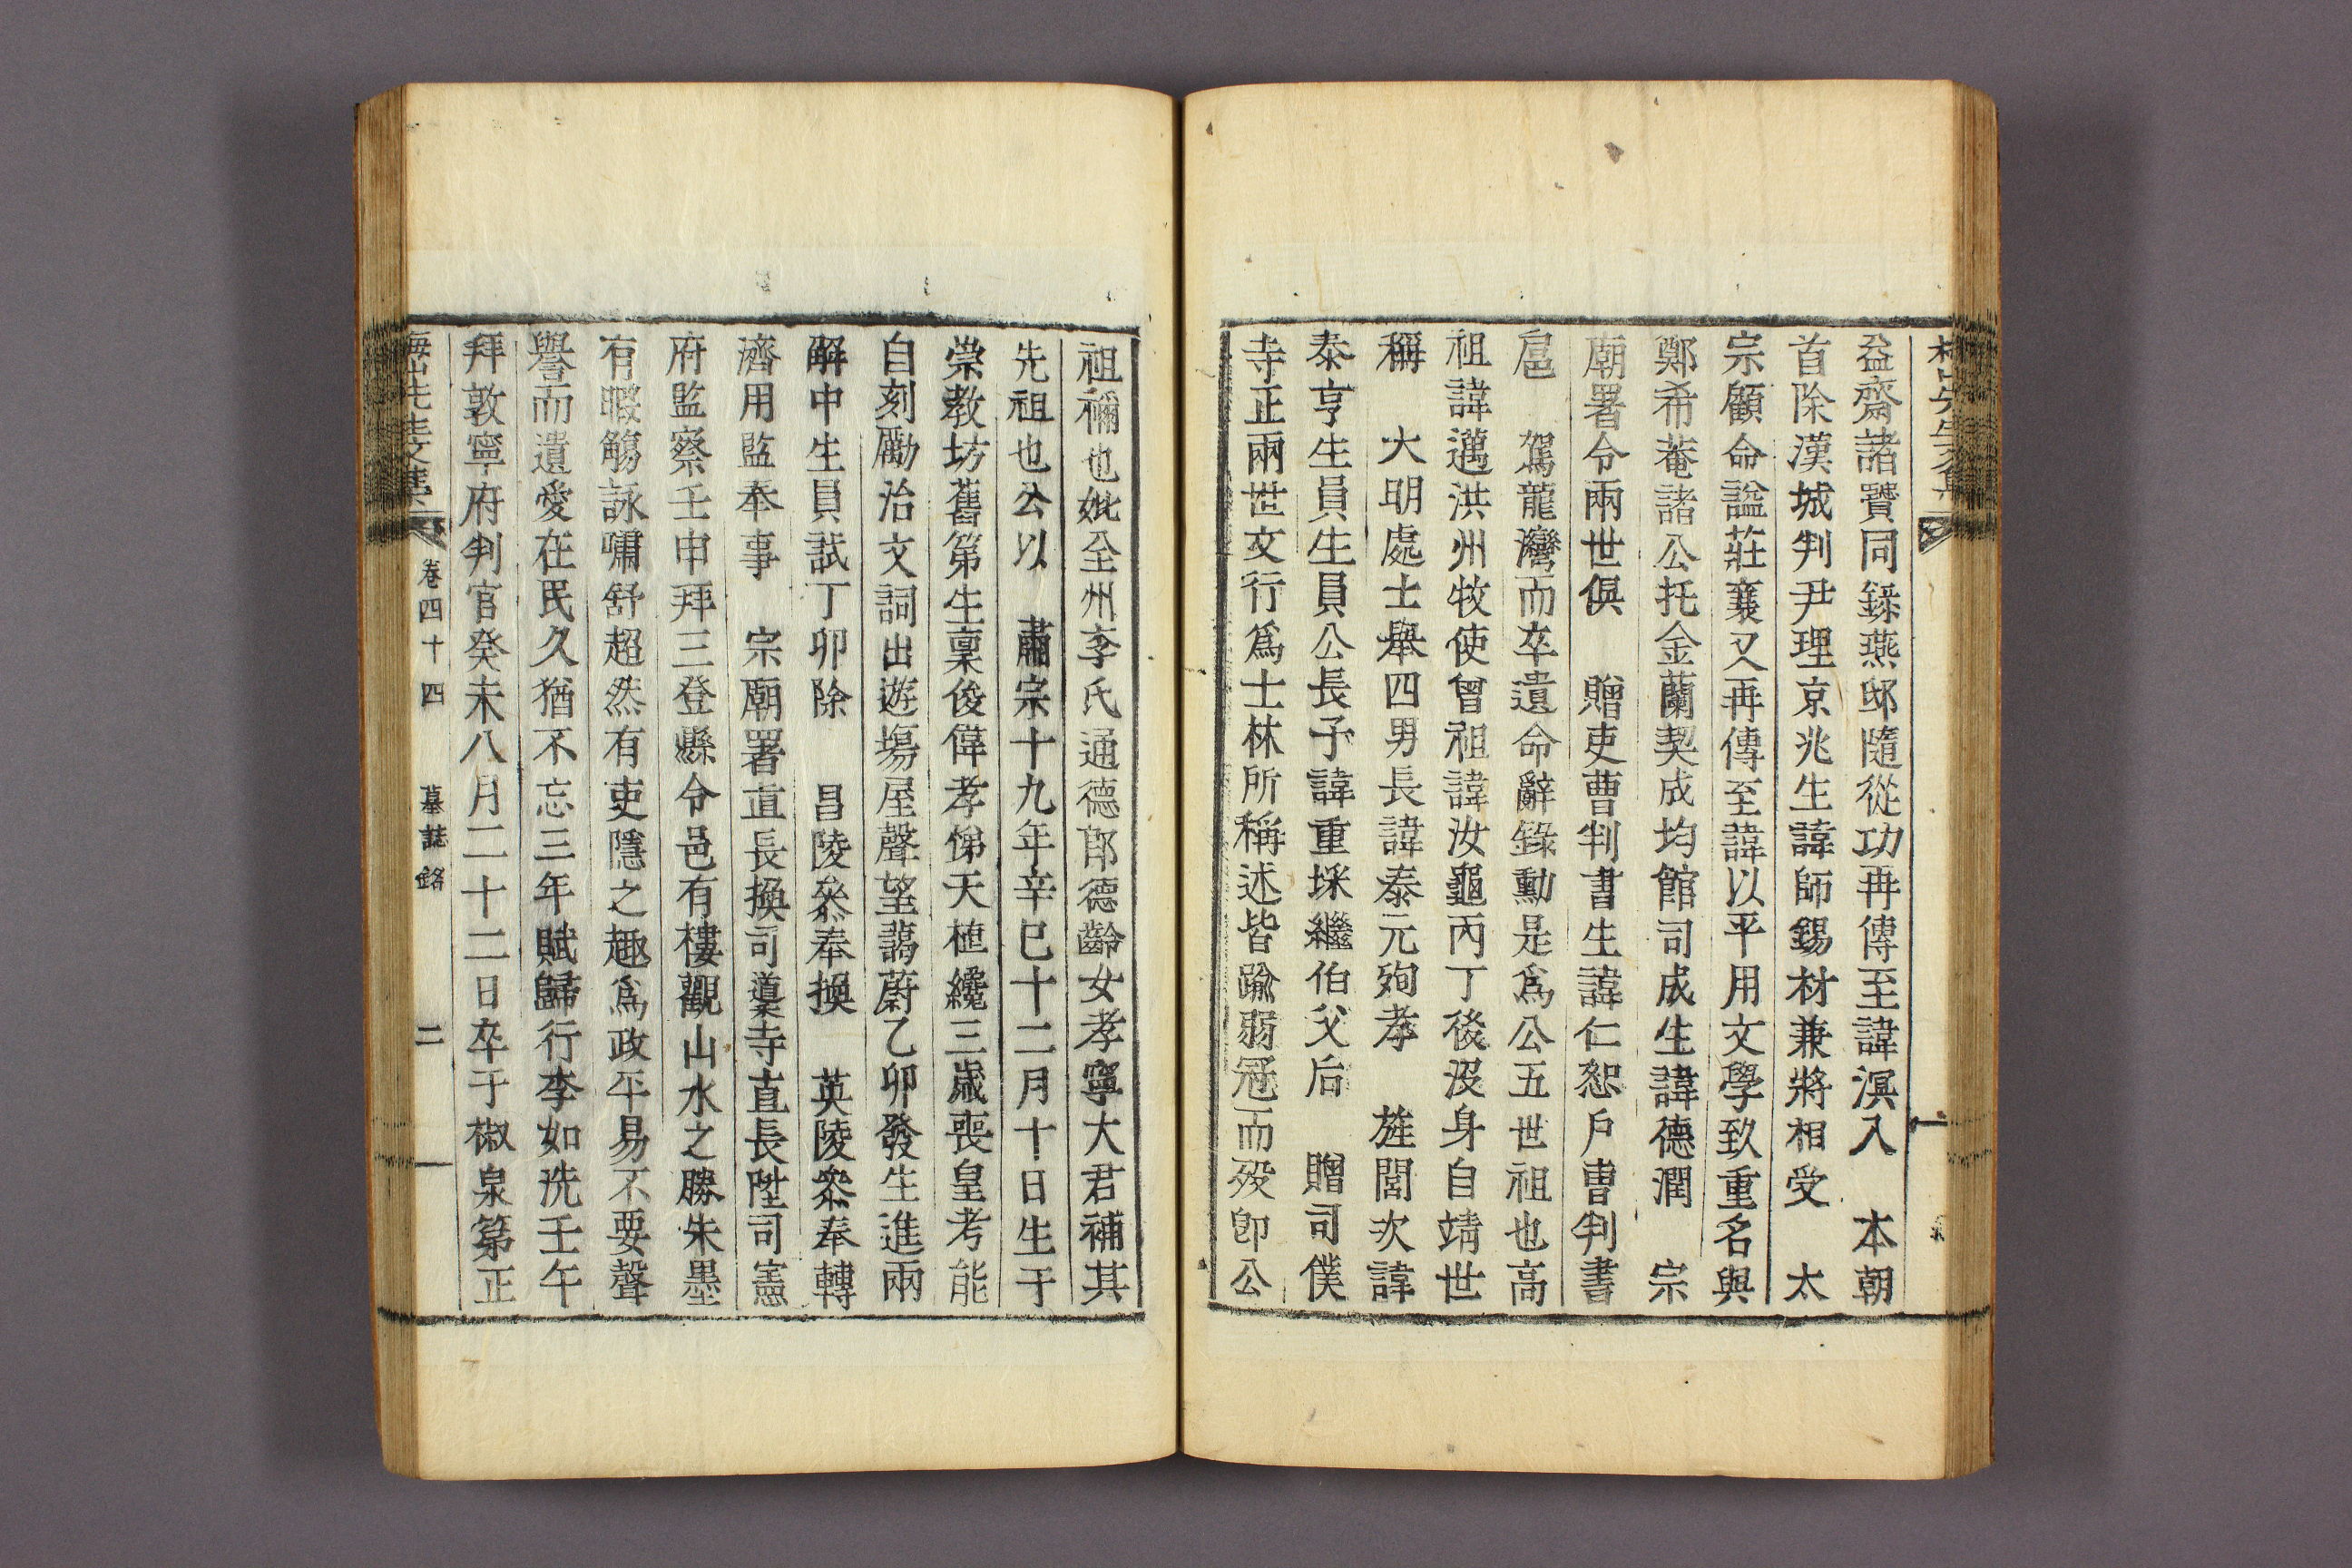 益齋諸賢同錄燕邸隨從功再傳至諱淇入 本朝
首除漢城判尹理京兆生諱師錫材兼將相受 太
宗顧命謚莊襄又再傳至諱以平用文學致重名與
鄭希菴諸公托金蘭契成均館司成生諱德潤 宗
廟署令兩世俱 贈吏曹判書生諱仁恕戶曹判書
扈 駕龍灣而卒遺命辭錄勳是爲公五世祖也高
祖諱邁洪州牧使曾祖諱汝龜丙丁後沒身自靖世
稱 大明處士擧四男長諱泰元殉孝 旌閭次諱
泰亨生員生員公長子諱重埰繼伯父后 贈司僕
寺正兩世文行爲士林所稱述皆踰弱冠而歿卽公
祖禰也妣全州李氏通德郎德齡女孝寧大君補其
先祖也公以 肅宗十九年辛巳十二月十日生于
崇敎坊舊第生稟俊偉孝悌天植纔三歲喪皇考能
自刻勵治文詞出遊場屋聲望藹蔚乙卯發生進兩
解中生員試丁卯除 昌陵參奉換 英陵參奉轉
濟用監奉事 宗廟署直長換司䆃寺直長陞司憲
府監察壬申拜三登縣令邑有樓觀山水之勝朱墨
有暇觴詠嘯舒超然有吏隱之趣爲政平易不要聲
譽而遺愛在民久猶不忘三年賦歸行李如洗壬午
拜敦寧府判官癸未八月二十二日卒于椒泉第正
卷四十四 墓誌銘 二